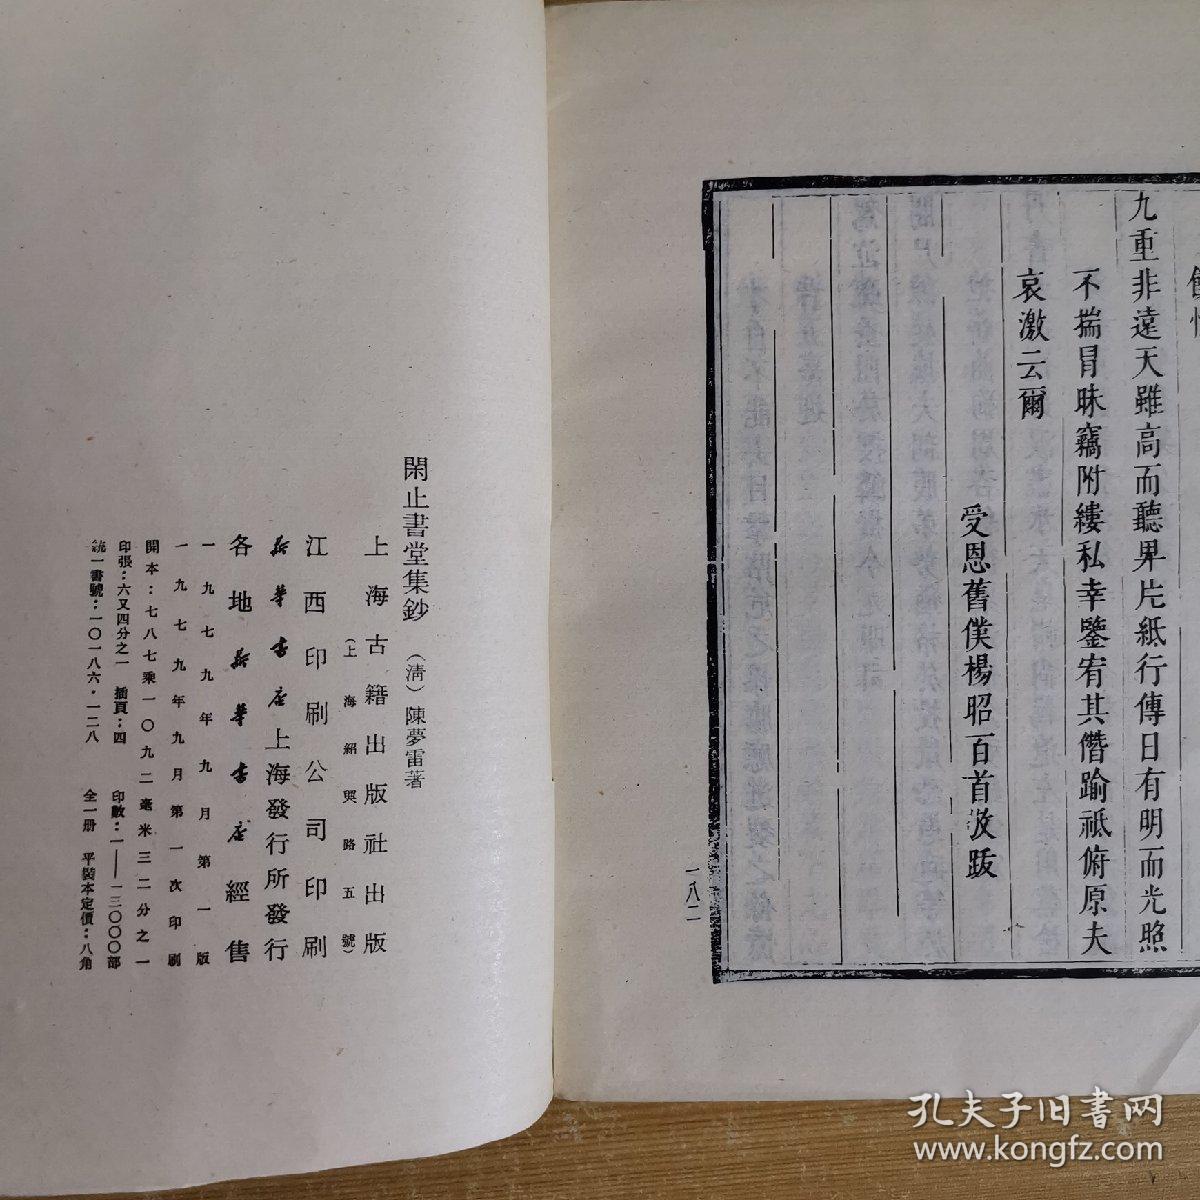 九重非遠天雖高而聽卑片紙行傳日有明而光照
不揣冒昧竊附縷私幸鑒宥其僭踰祗俯原夫
哀激云爾
受恩舊僕楊昭百首跋
一八二
閑止書堂集鈔 (清)陳夢雷著
上海古籍出版社出版
(上海紹興路五號)
江西印刷公司印刷
新華書店上海發行所發行
各地新華書店經售
一九七九年九月第一版
一九七九年九月第一次印刷
開本:七八七乘一〇九二毫米三二分之一
印張:六又四分之一 插頁:四 印數:一——一三〇〇〇部
統一書號:一〇一八六·一二八 全一册 平裝本定價:八角
孔夫子旧書网
www.kongfz.com